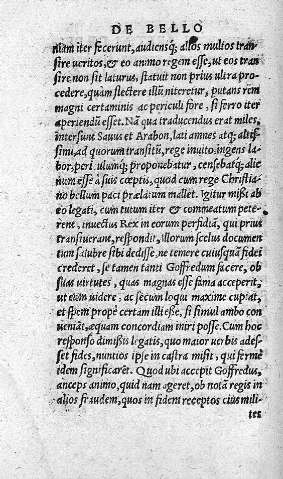 DE BELLO
niam iter fecerunt, audiensq; alios multos tran
sire ueritos, & eo animo regem esse, ut eos tran
sire non sit laturus, statuit non prius ultra pro
cedere, quàm flectere illũ niteretur, putans rem
magni certaminis ac periculi fore, si ferro iter
aperiendũ esset. Nã qua traducendus erat miles,
intersunt Sauus et Arabon, lati amnes atq; altis-
simi, ad quorum transitũ, rege inuito, ingens la-
bor, periculumq; proponebatur, censebatq; alie
num esse à suis cœptis, quod cum rege Christia-
no bellum paci prælatum mallet. Igitur missi ab
eo legati, cum tutum iter & commeatum pete-
rent, inuectus Rex in eorum perfidiã, qui prius
transiuerant, respondit, illorum scelus documen
tum salubre sibi dedisse, ne temere cuiusquã fidei
crederet, se tamen tanti Goffredum facere, ob
suas uirtutes, quas magnas esse fama acceperit,
ut eum uidere, ac secum loqui maxime cupiat,
et spem propè certam illi esse, si simul ambo con
ueniãt, æquam concordiam iniri posse. Cum hoc
responso dimissis legatis, quo maior uerbis ades-
set fides, nuntios ipse in castra misit, qui fermè
idem significarẽt. Quod ubi accepit Goffredus,
anceps animo, quid nam ageret, ob notã regis in
alios fraudem, quos in fidem receptos eius mili-
tes